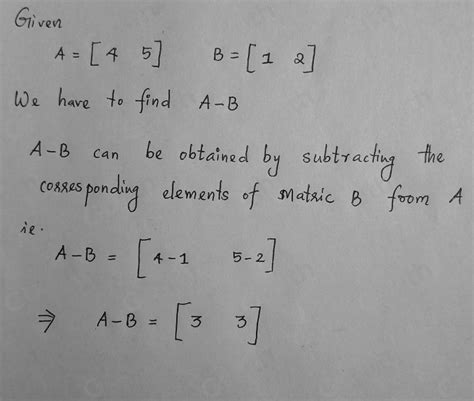 Given
A = [ 4 5 ] B = [ 1 2 ]
We have to find A-B
A-B can be obtained by subtracting the
corresponding elements of Matric B from A
ie.
A-B = [ 4-1 5-2 ]
⇒ A-B = [ 3 3 ]